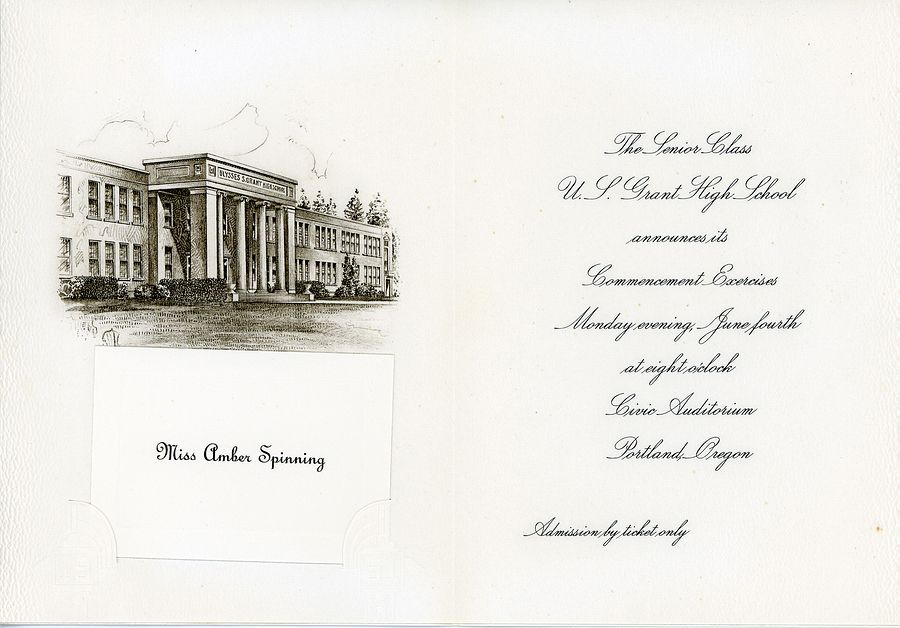 ULYSSES S. GRANT HIGH SCHOOL
Miss Amber Spinning
The Senior Class
U. S. Grant High School
announces its
Commencement Exercises
Monday evening, June fourth
at eight o'clock
Civic Auditorium
Portland, Oregon
Admission by ticket only